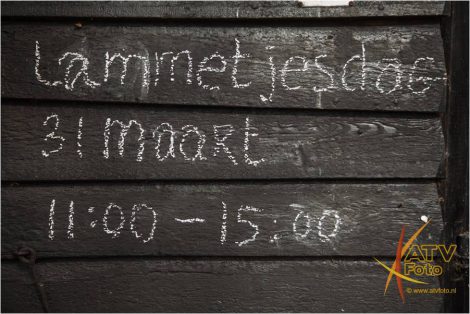 Lammetjesdag
31 maart
11:00 - 15:00
ATV
Foto
© www.atvfoto.nl